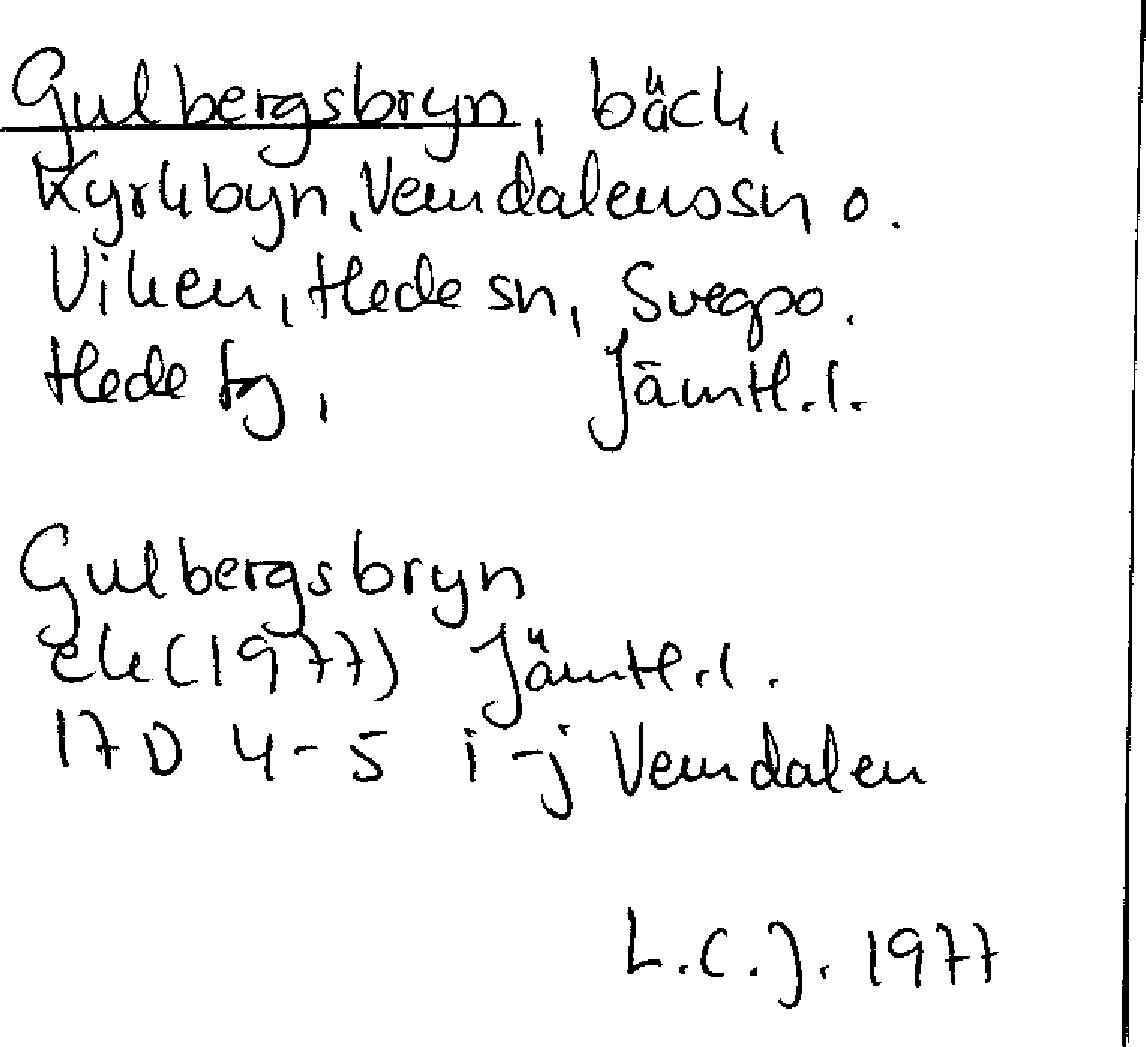 Gulbergsbryn, bäck,
Kyrkbyn, Vemdalens sn o.
Viken, Hede sn, Svegs po.
Hede tg, Jämtl.l.
Gulbergsbryn
ek (1977) Jämtl.l.
17D 4-5 i-j Vemdalen
L.C.J. 1977